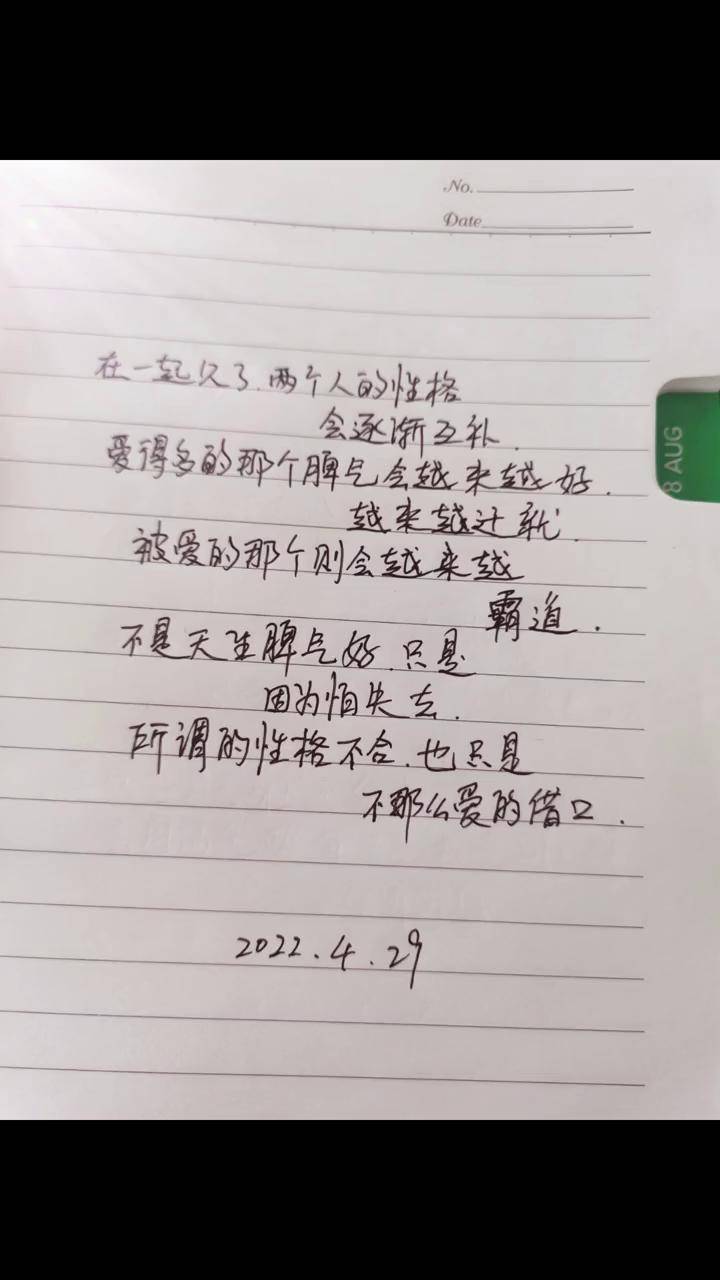 No.
Date
在一起久了.两个人的性格
会逐渐互补.
爱得多的那个脾气会越来越好.
越来越迁就.
被爱的那个则会越来越
霸道.
不是天生脾气好.只是
因为怕失去.
所谓的性格不合.也只是
不那么爱的借口.
2022.4.29
8 AUG